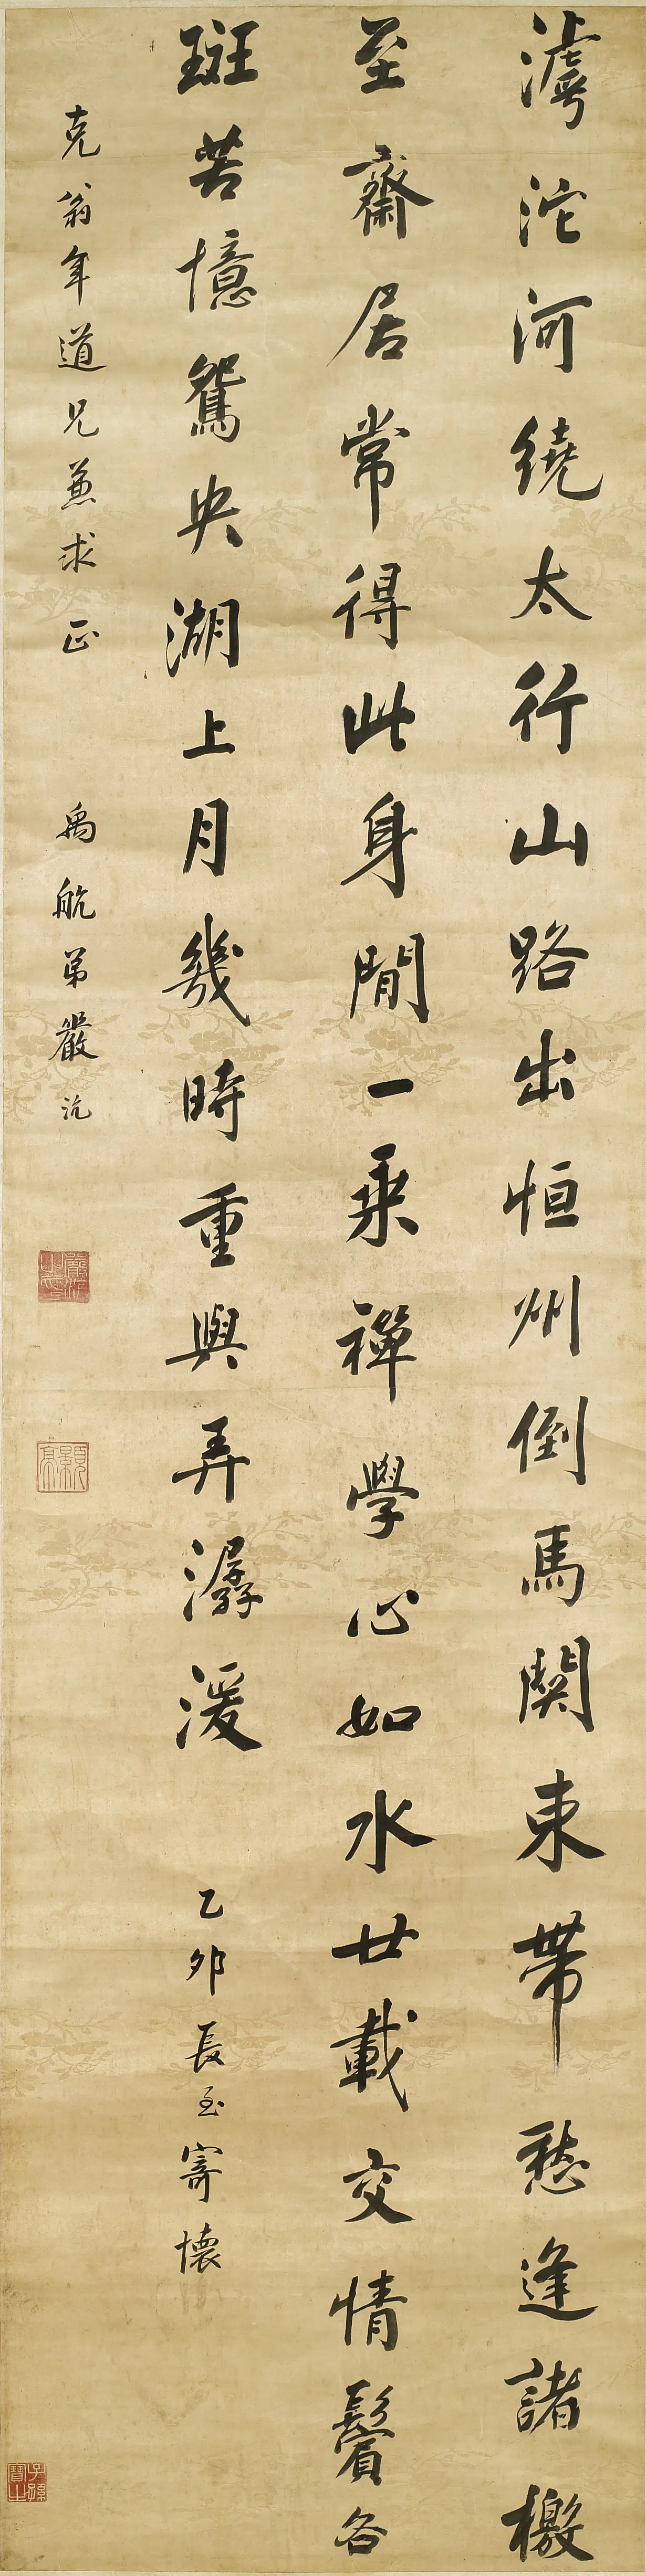 滹沱河繞太行山路出恒州倒馬関束帶愁逢諸檄
至齋居常得此身閒一乘禪學心如水廿載交情鬢各
斑苦憶鴛央湖上月幾時重與弄潺湲
乙卯長至寄懷
克翁年道兄兼求正
禹航弟嚴沆
嚴沆之印
顥亭
子孫寶之